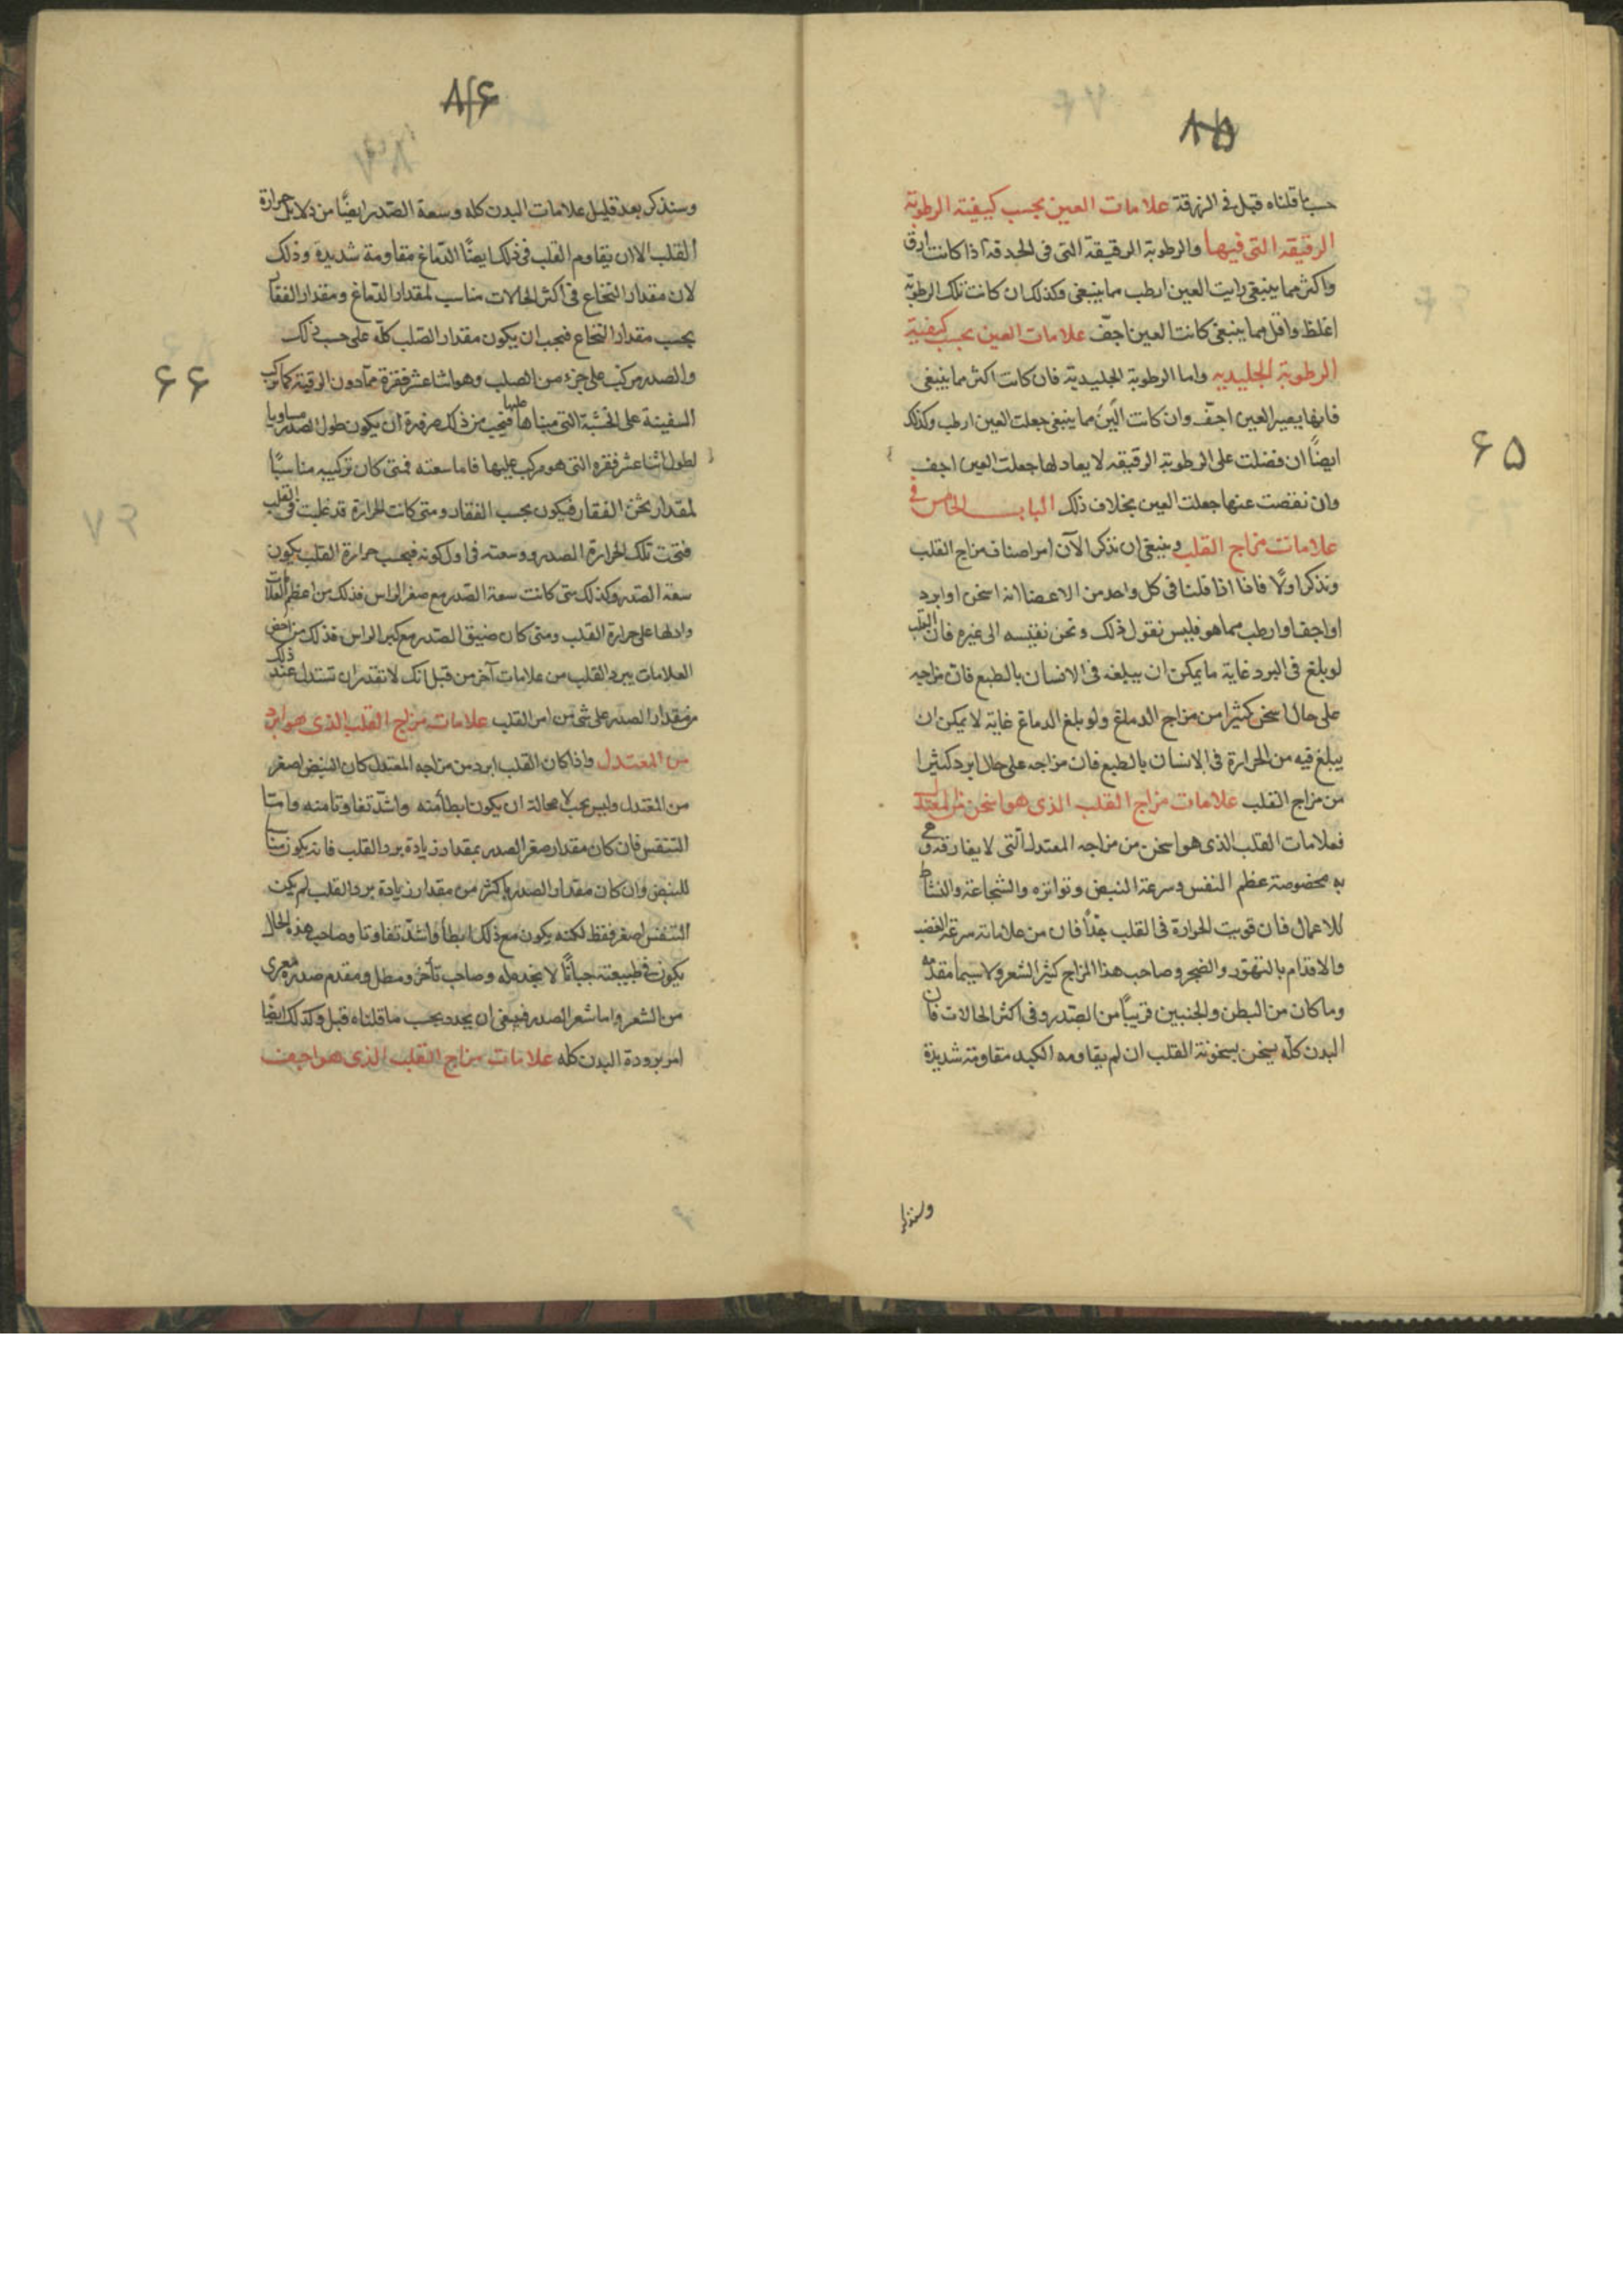 ٨٥
حسب ما قلناه قبل فى الزرقة علامات العين بحسب كيفية الرطوبة
الرقيقه التى فيها والرطوبة الرقيقة التى فى الحدقة اذا كانت ارق
واكثر مما ينبغى رايت العين ارطب مما ينبغى وكذلك ان كانت تلك الرطوبة
اغلظ واقل مما ينبغى كانت العين اجفّ علامات العين بحسب كيفية
الرطوبة الجليديه واما الرطوبة الجليدية فان كانت اكثر مما ينبغى
فانها يصير العين اجفّ وان كانت الين مما ينبغى جعلت العين ارطب وكذلك
ايضاً ان فضلت على الرطوبة الرقيقه لا يعادلها جعلت العين اجف
وان نقصت عنها جعلت العين بخلاف ذلك الباب الخامس فى
علامات مزاج القلب وينبغى ان نذكر الآن امر اصناف مزاج القلب
ونذكر اولًا فانا اذا قلنا فى كل واحد من الاعضا انه اسخن او ابرد
او اجف او ارطب مما هو فليس نقول ذلك ونحن نقيسه الى غيره فان القلب
لو بلغ فى البرد غاية ما يمكن ان يبلغه فى الانسان بالطبع فان مزاجه
على حال اسخن كثيرا من مزاج الدماغ ولو بلغ الدماغ غاية لا يمكن ان
يبلغ فيه من الحرارة فى الانسان بالطبع فان مزاجه على حال ابرد كثيرا
من مزاج القلب علامات مزاج القلب الذى هو اسخن من المعتدل
فعلامات القلب الذى هو اسخن من مزاجه المعتدل التى لا يفارقه وهى
به مخصوصة عظم النفس وسرعة النبض وتواتره والشجاعة والنشاط
للاعمال فان قويت الحرارة فى القلب جدًّا فان من علاماته سرعة الغضب
والاقدام بالتهور والضجر وصاحب هذا المزاج كثير الشعر ولا سيما مقدّمه
وما كان من البطن والجنبين قريباً من الصدر وفى اكثر الحالات فان
البدن كلّه يسخن بسخونة القلب ان لم يقاومه الكبد مقاومة شديدة
وسنذكر
٦٥
٨٦
وسنذكر بعد قليل علامات البدن كله وسعة الصّدر ايضًا من دلايل حرارة
القلب الا ان يقاوم القلب فى ذلك ايضًا الدّماغ مقاومة شديدة وذلك
لان مقدار النخاع فى اكثر الحالات مناسب لمقدار الدّماغ ومقدار الفقار
بحسب مقدار النّخاع فيجب ان يكون مقدار الصّلب كلّه على حسب ذلك
والصدر مركب على جزء من الصلب وهو اثنا عشر فقرة ممّا دون الرقبة كما تركب
السفينة على الخشبة التى مبناها عليها فيجب من ذلك ضرورة ان يكون طول الصدر مساويا
لطول اثنا عشر فقره التى هو مركب عليها فاما سعته فمتى كان تركيبه مناسبًا
لمقدار ثخن الفقار فيكون بحسب الفقار ومتى كانت الحرارة قد غلبت فى القلب
فتحت تلك الحرارة الصدر ووسعته فى اول كونه فبحسب حرارة القلب يكون
سعة الصّدر وكذلك متى كانت سعة الصّدر مع صغر الراس فذلك من اعظم العلامات
وادلها على حرارة القلب ومتى كان ضيق الصّدر مع كبر الراس فذلك من اخص
العلامات ببرد القلب من علامات آخر من قبل انك لا تقدر ان تستدل عند ذلك
من مقدار الصدر على شئ من امر القلب علامات مزاج القلب الذى هو ابرد
من المعتدل واذا كان القلب ابرد من مزاجه المعتدل كان النبض اصغر
من المعتدل وليس يجب لا محالة ان يكون ابطأ منه واشدّ تفاوتا منه واما
التنفس فان كان مقدار صغر الصدر بمقدار زيادة برد القلب فانه يكون مناسبا
للنبض وان كان مقدار الصدر باكثر من مقدار زيادة برد القلب لم يكن
التنفس اصغر فقط لكنه يكون مع ذلك ابطأ واشدّ تفاوتا وصاحب هذه الحال
يكون فى طبيعته جبانًا لا نجدة له وصاحب تأخر ومطل ومقدم صدره معرى
من الشعر واما شعر الصدر فينبغى ان يحدد بحسب ما قلناه قبل وكذلك ايضًا
امر برودة البدن كله علامات مزاج القلب الذى هو اجف
٦٦